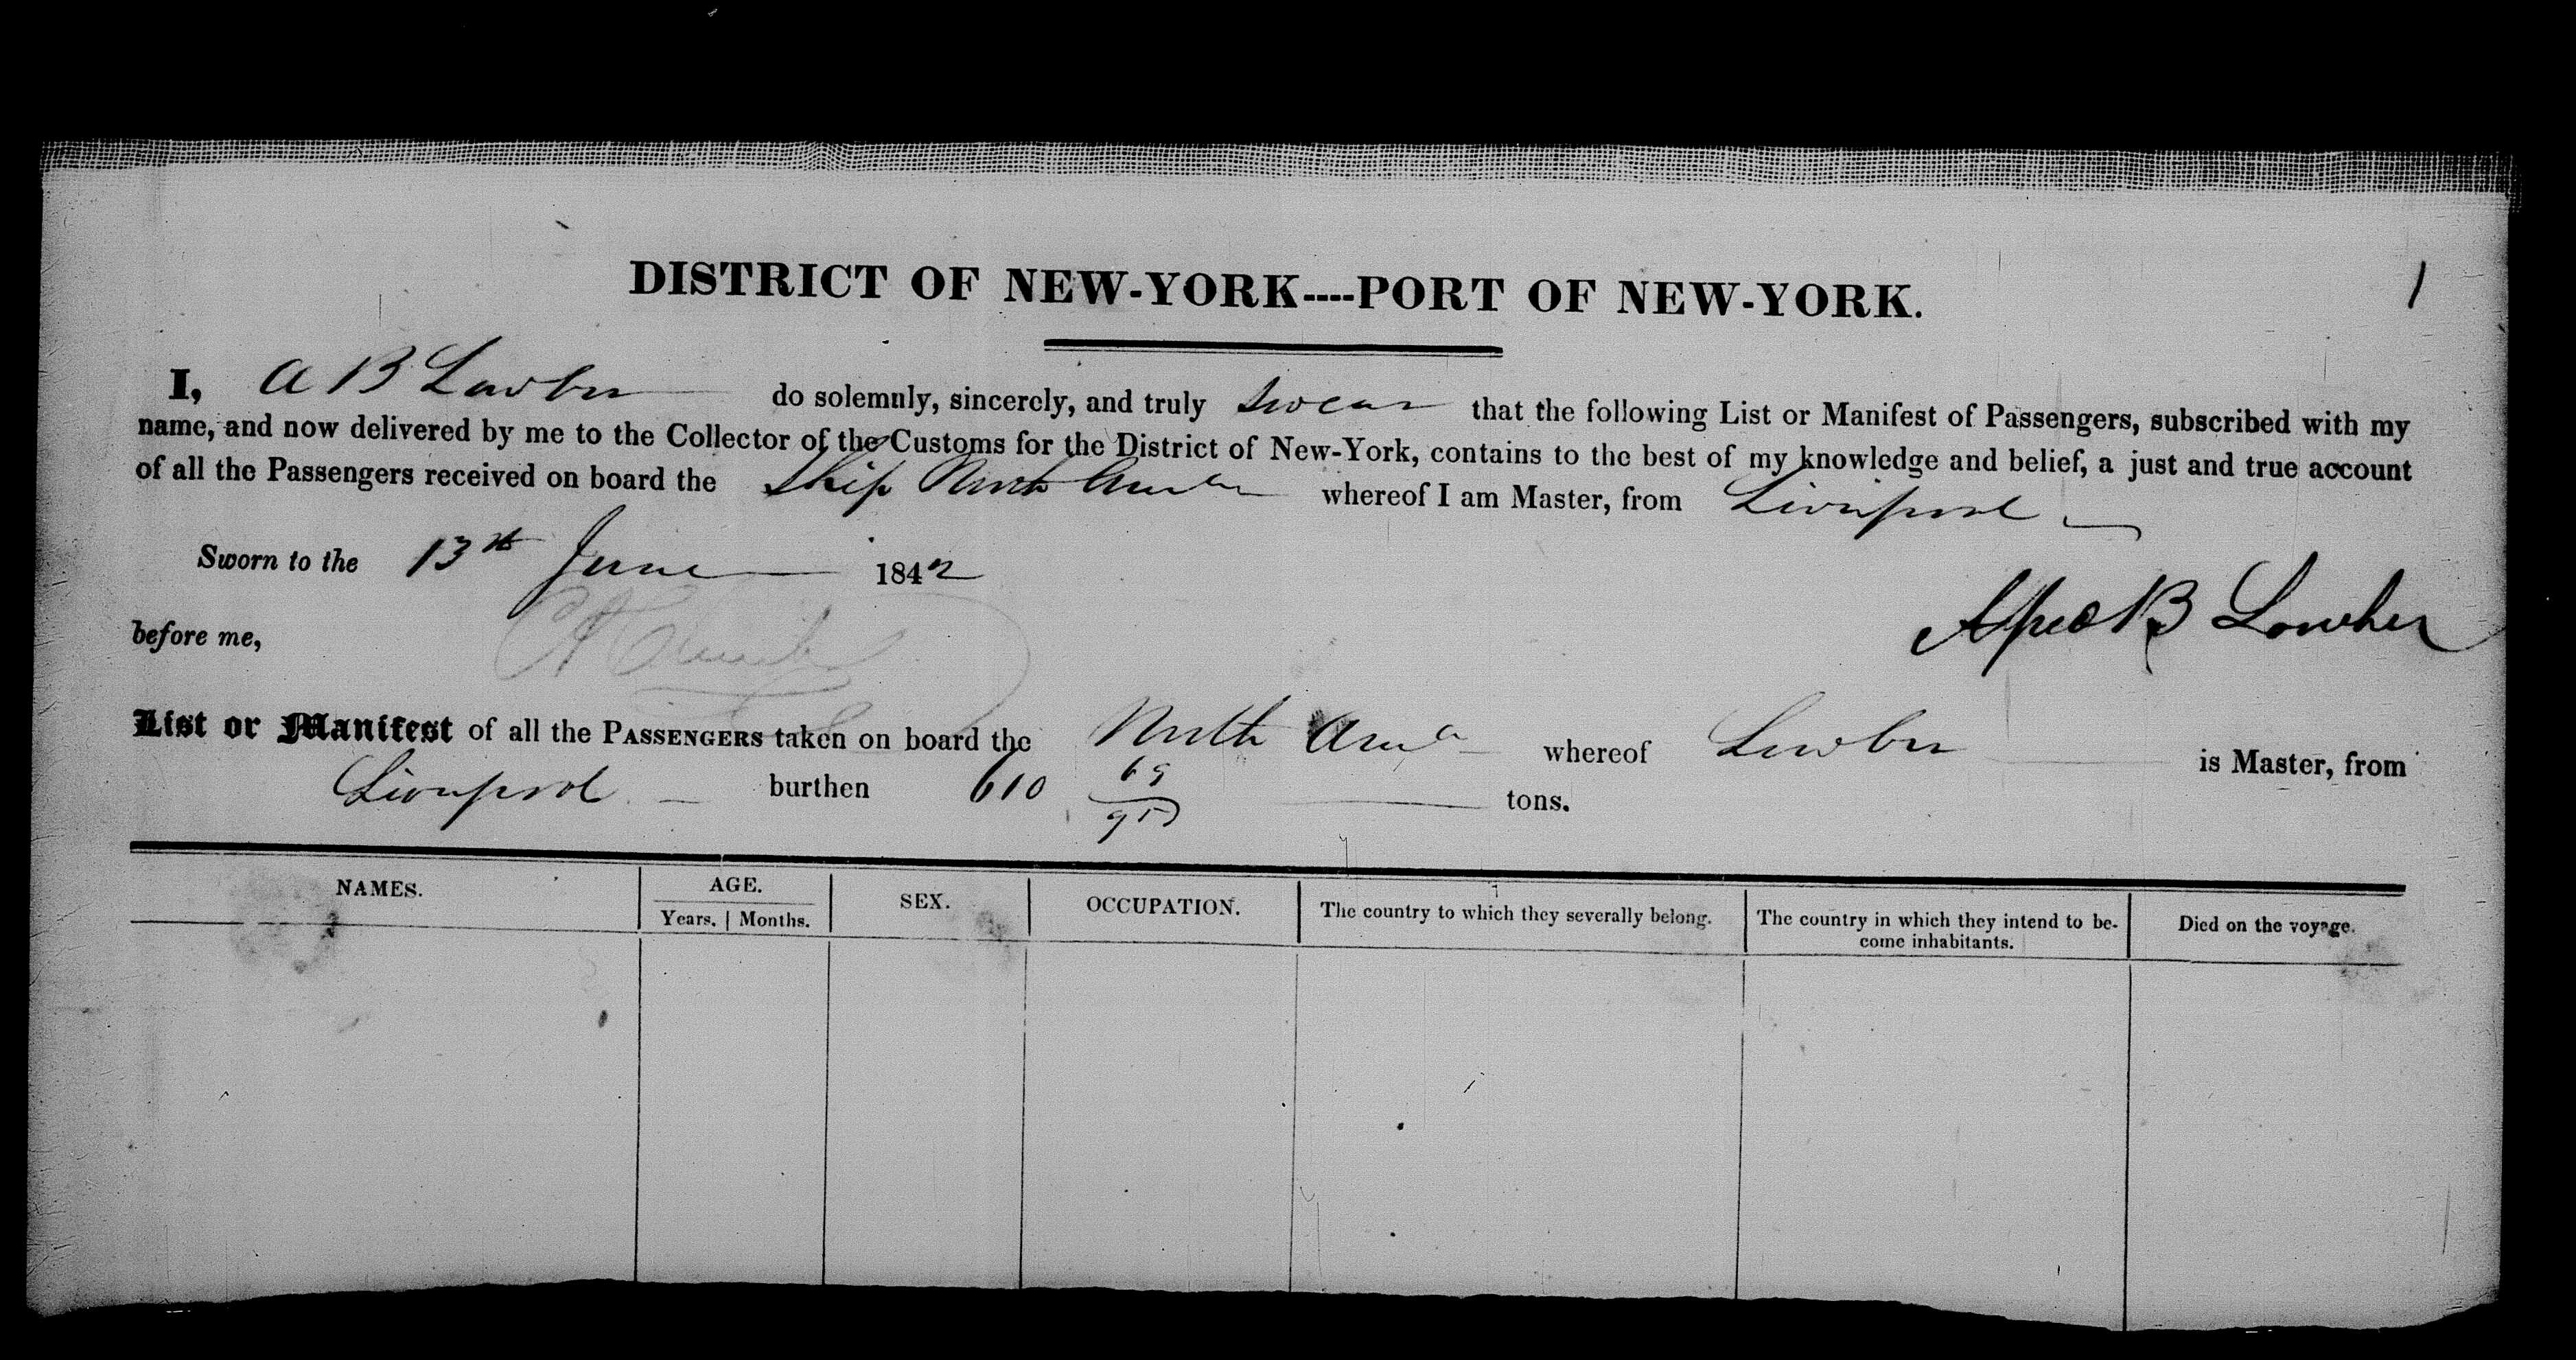 DISTRICT OF NEW-YORK----PORT OF NEW-YORK.
1
I, A B Lowber do solemnly, sincerely, and truly swear that the following List or Manifest of Passengers, subscribed with my
name, and now delivered by me to the Collector of the Customs for the District of New-York, contains to the best of my knowledge and belief, a just and true account
of all the Passengers received on board the Ship North Amer whereof I am Master, from Liverpool
Sworn to the 13th June 1842
before me,
B Lowber
List or Manifest of all the PASSENGERS taken on board the North Ama whereof Lowber is Master, from
Liverpool burthen 610 69/95 tons.
NAMES. AGE. SEX. OCCUPATION. The country to which they severally belong. The country in which they intend to be-
Years. Months. come inhabitants. Died on the voyage.